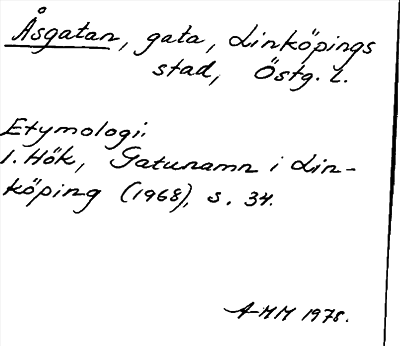 Åsgatan, gata, Linköpings
stad, Östg. l.
Etymologi:
I. Hök, Gatunamn i Lin-
köping (1968), s. 34.
AMM 1978.